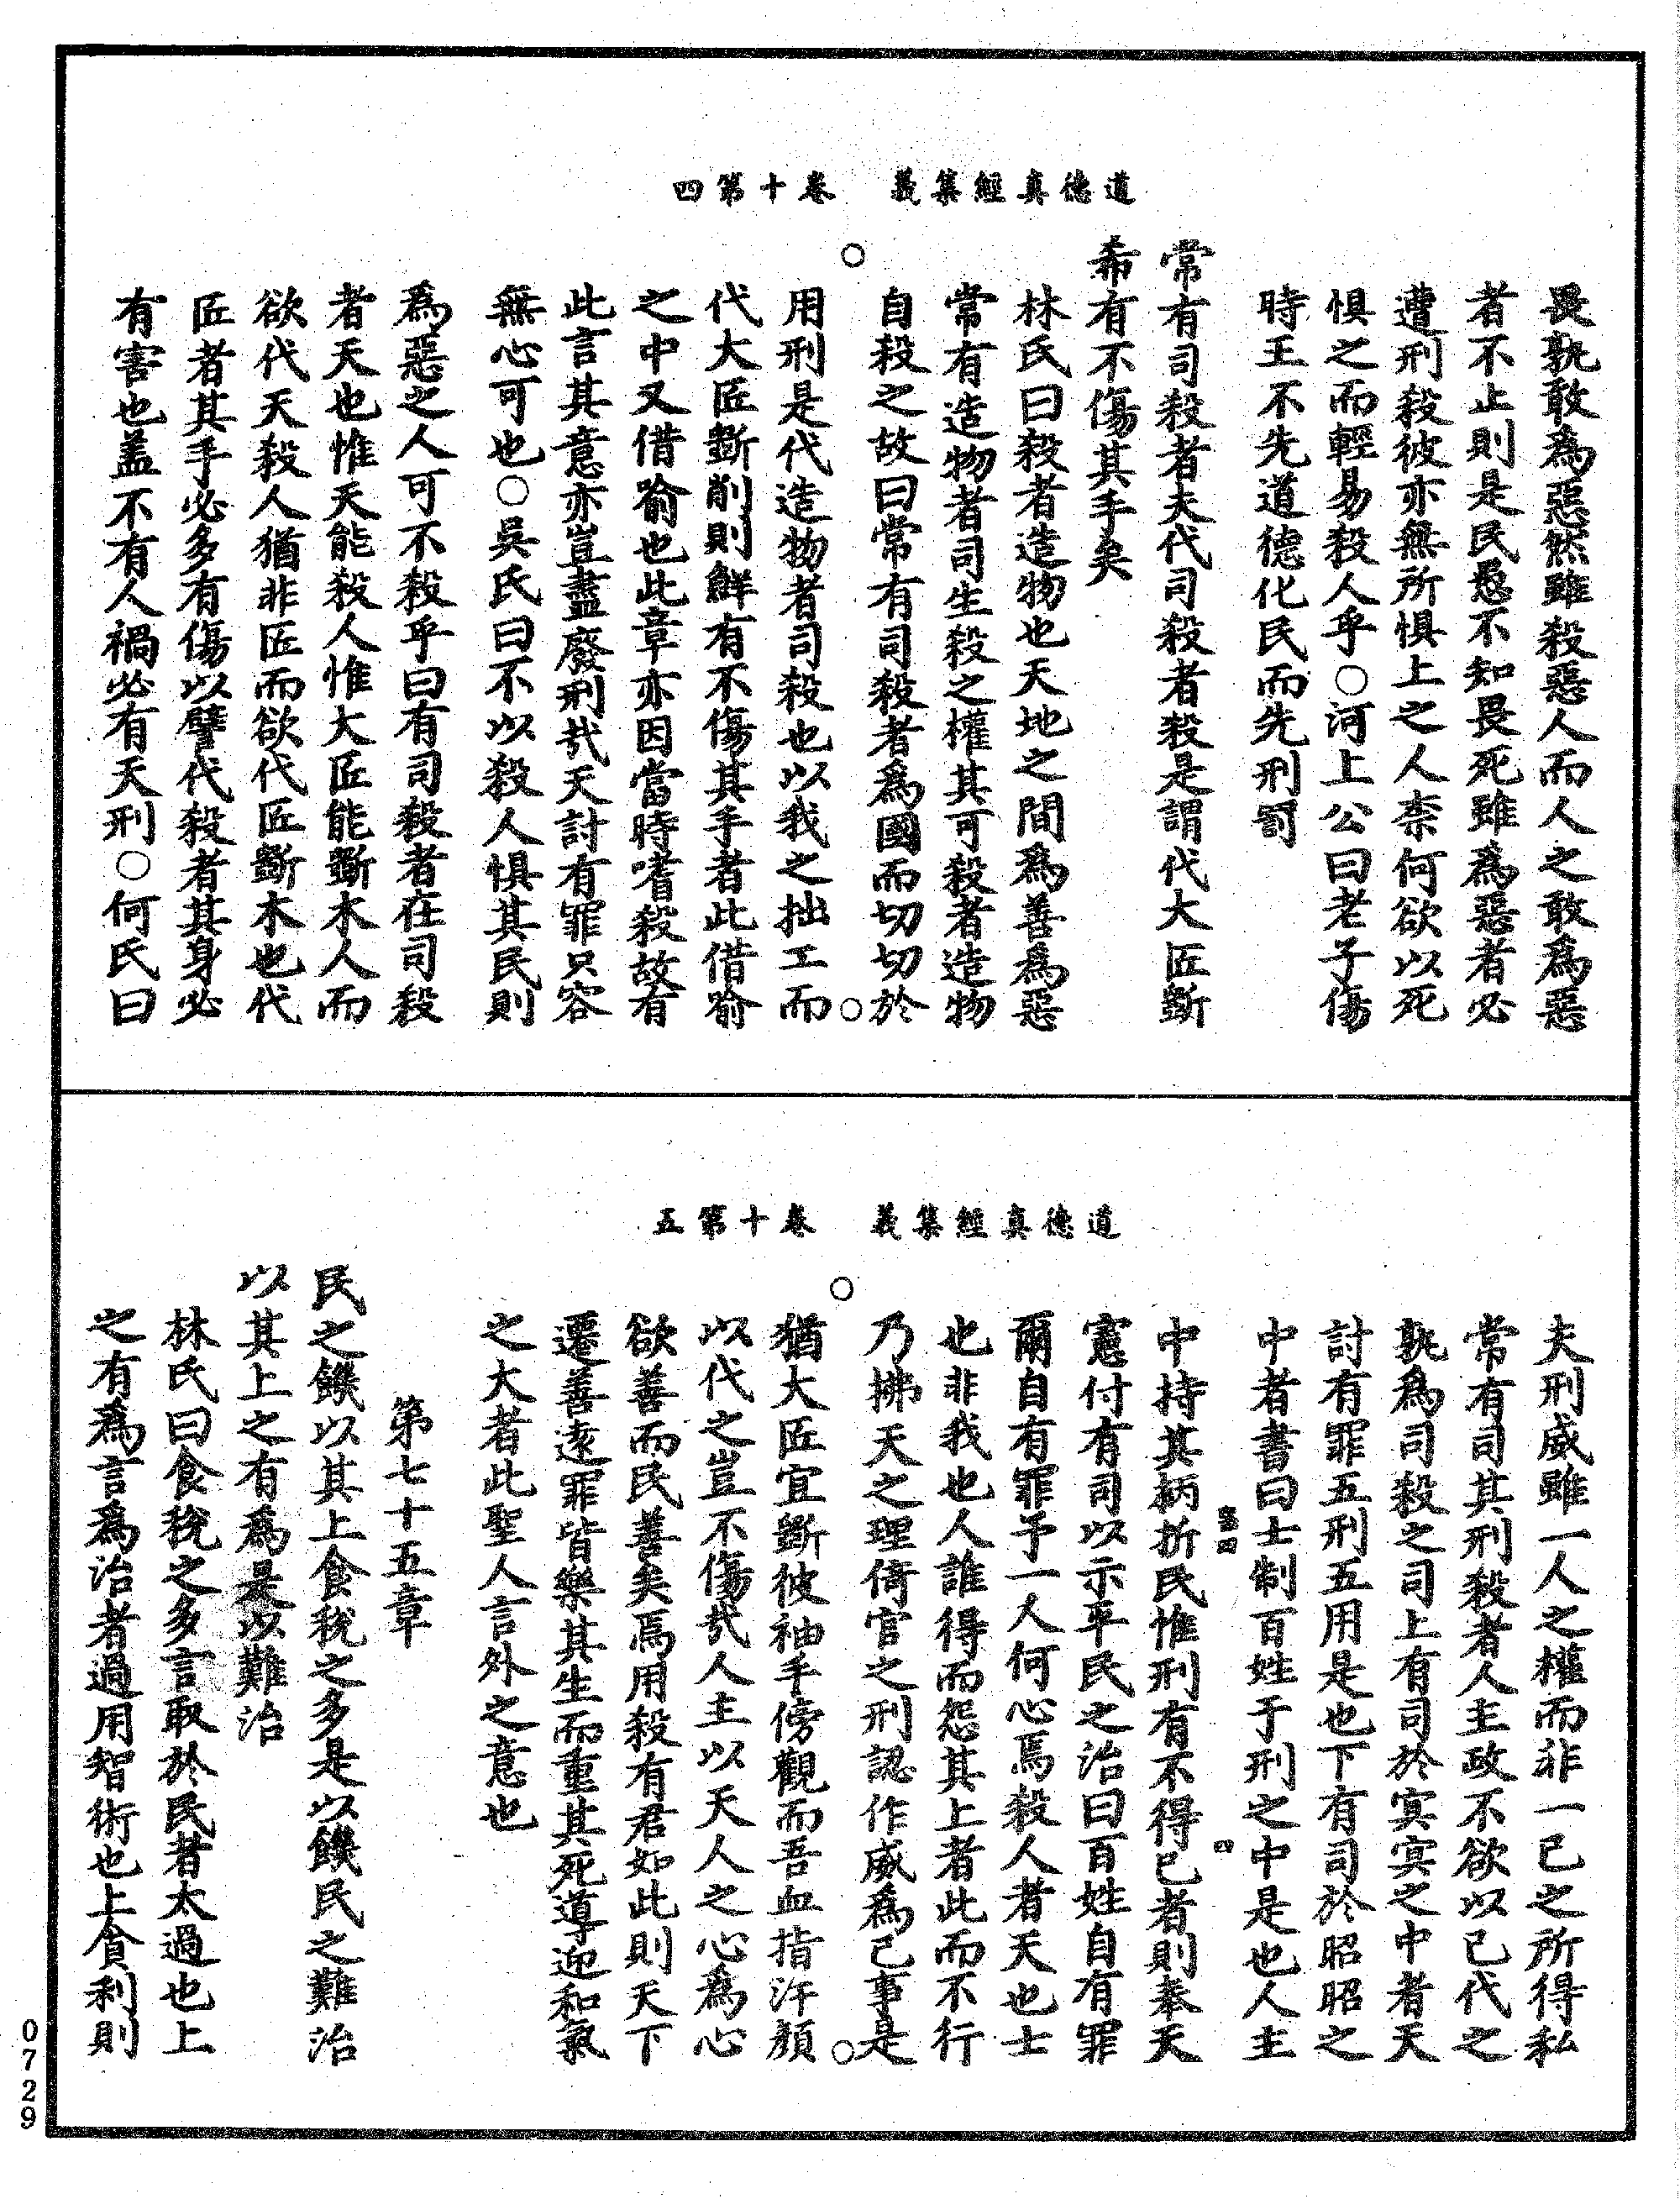 道德真經集義　卷十第四
畏孰敢為惡然雖殺惡人而人之敢為惡
者不止則是民愚不知畏死雖為惡者必
遭刑殺彼亦無所惧上之人柰何欲以死
惧之而輕易殺人乎○河上公曰老子傷
時王不先道德化民而先刑罰
常有司殺者夫代司殺者殺是謂代大匠斲
希有不傷其手矣
林氏曰殺者造物也天地之間為善為惡
常有造物者司生殺之權其可殺者造物
自殺之故曰常有司殺者為國而切切於
用刑是代造物者司殺也以我之拙工而
代大匠斲削則鮮有不傷其手者此借喻
之中又借喻也此章亦因當時嗜殺故有
此言其意亦豈盡廢刑哉天討有罪只容
無心可也○吳氏曰不以殺人惧其民則
為惡之人可不殺乎曰有司殺者在司殺
者天也惟天能殺人惟大匠能斲木人而
欲代天殺人猶非匠而欲代匠斲木也代
匠者其手必多有傷以譬代殺者其身必
有害也盖不有人禍必有天刑○何氏曰
道德真經集義　卷十第五
夫刑威雖一人之權而非一己之所得私
常有司其刑殺者人主政不欲以己代之
孰為司殺之司上有司於㝠㝠之中者天
討有罪五刑五用是也下有司於昭昭之
中者書曰士制百姓于刑之中是也人主
中持其柄折民惟刑有不得已者則奉天
憲付有司以示平民之治曰百姓自有罪
爾自有罪予一人何心焉殺人者天也士
也非我也人誰得而怨其上者此而不行
乃拂天之理倚官之刑認作威為己事是
猶大匠宜斲彼袖手傍觀而吾血指汗顏
以代之豈不傷哉人主以天人之心為心
欲善而民善矣焉用殺有君如此則天下
遷善遠罪皆樂其生而重其死導迎和氣
之大者此聖人言外之意也
第七十五章
民之饑以其上食稅之多是以饑民之難治
以其上之有為是以難治
林氏曰食稅之多言取於民者太過也上
之有為言為治者過用智術也上貪利則
0729